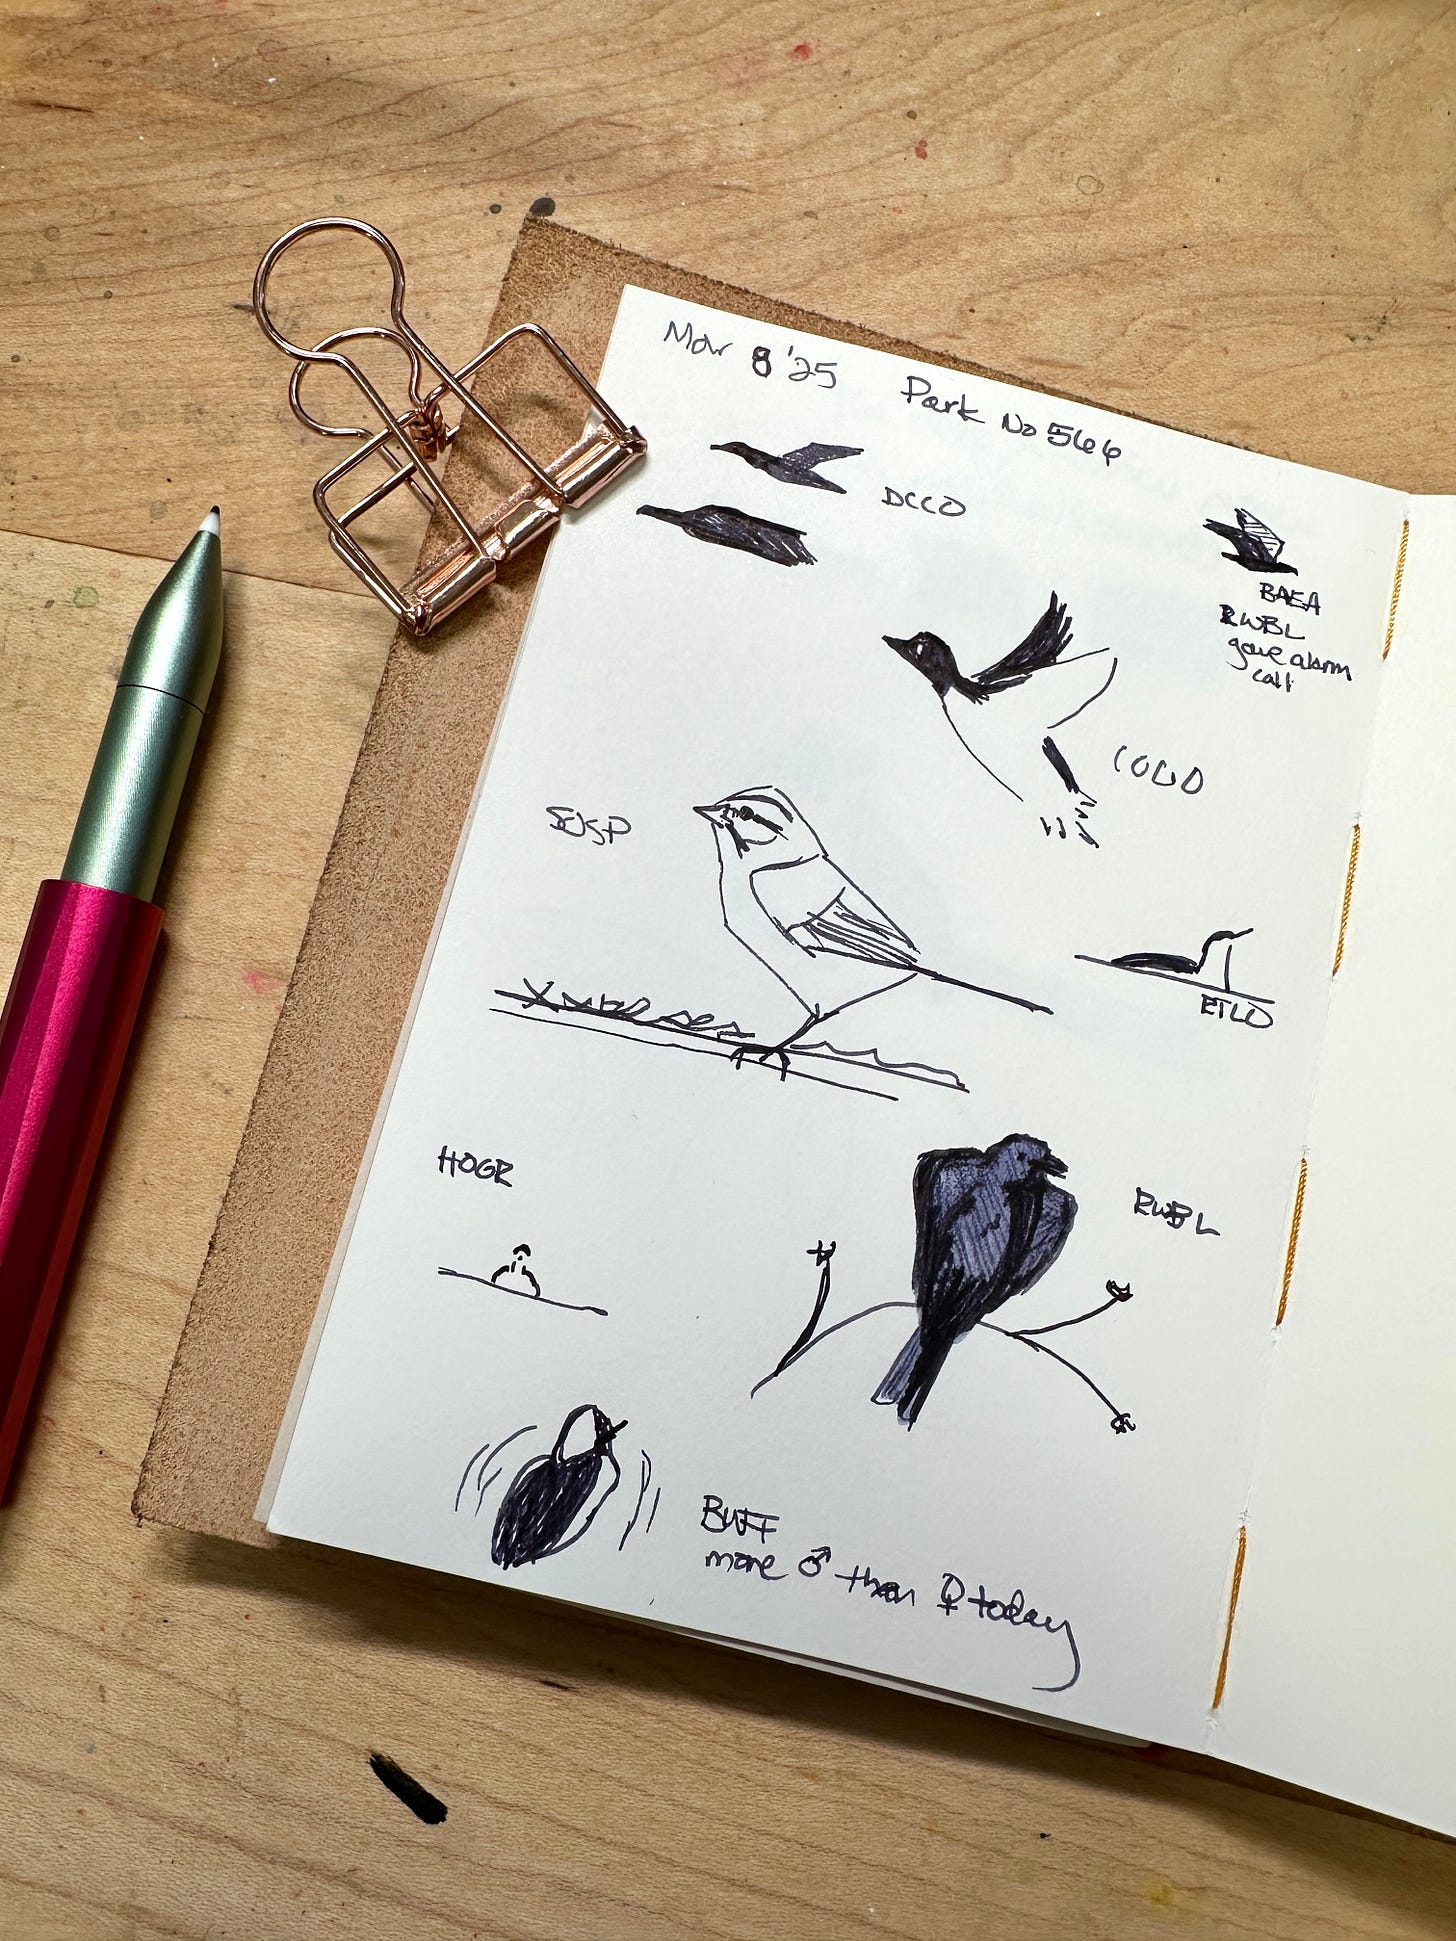 Mar 8 '25 Park No 566
DCCO
BAEA
RWBL
gave alarm
call
COGO
SOSP
RTLO
HOGR
RWBL
BUFF
more ♂ than ♀ today